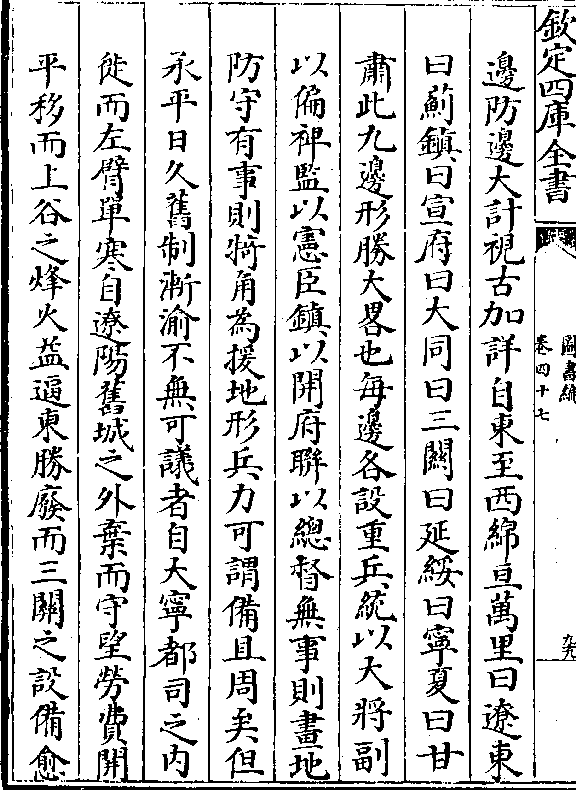 欽定四庫全書
圖書編
卷四十七
九
邊防邊大計視古加詳自東至西綿亘萬里曰遼東
曰薊鎮曰宣府曰大同曰三關曰延綏曰寧夏曰甘
肅此九邊形勝大畧也每邊各設重兵統以大將副
以偏裨監以憲臣鎮以開府聯以總督無事則畫地
防守有事則犄角為援地形兵力可謂備且周矣但
承平日久舊制漸渝不無可議者自大寧都司之内
徙而左臂單寒自遼陽舊城之外棄而守望勞費開
平移而上谷之烽火益逼東勝廢而三關之設備愈